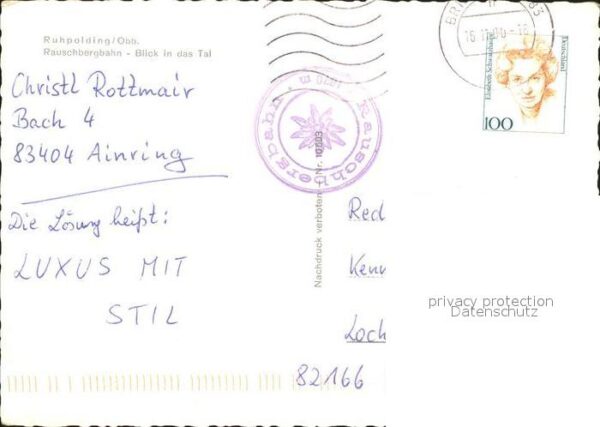 Ruhpolding/Obb.
Rauschbergbahn - Blick in das Tal
Christl Rottmair
Bach 4
83404 Ainring
Die Lösung heißt:
LUXUS MIT
STIL
Rauschbergbahn · 1672 m ·
Nachdruck verboten - Nr. 10603
Elisabeth Schwarzhaupt
Deutschland
100
Red
Kenn
Loch
82166
privacy protection
Datenschutz